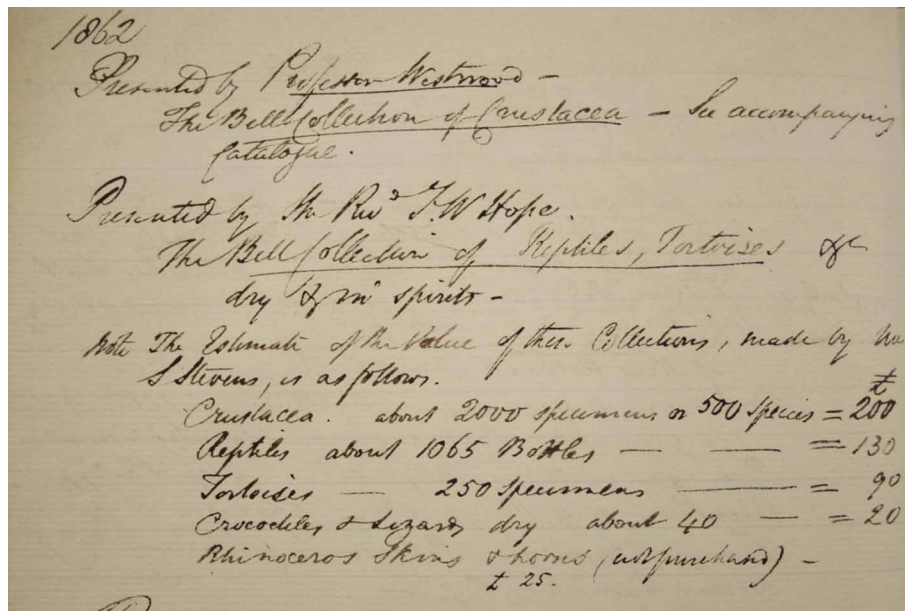 1862
Presented by Professor Westwood –
The Bell Collection of Crustacea – See accompanying
Catalogue.
Presented by the Revd F.W Hope.
The Bell Collection of Reptiles, Tortoises &c
dry & in spirits –
Note The Estimate of the Value of these Collections, made by
S Stevens, is as follows.
£
Crustacea. about 2000 specimens or 500 species = 200
Reptiles about 1065 Bottles — — = 130
Tortoises — 250 specimens — = 90
Crocodiles & Lizards dry about 40 — = 20
Rhinoceros Skins & horns (not purchased) –
£ 25.